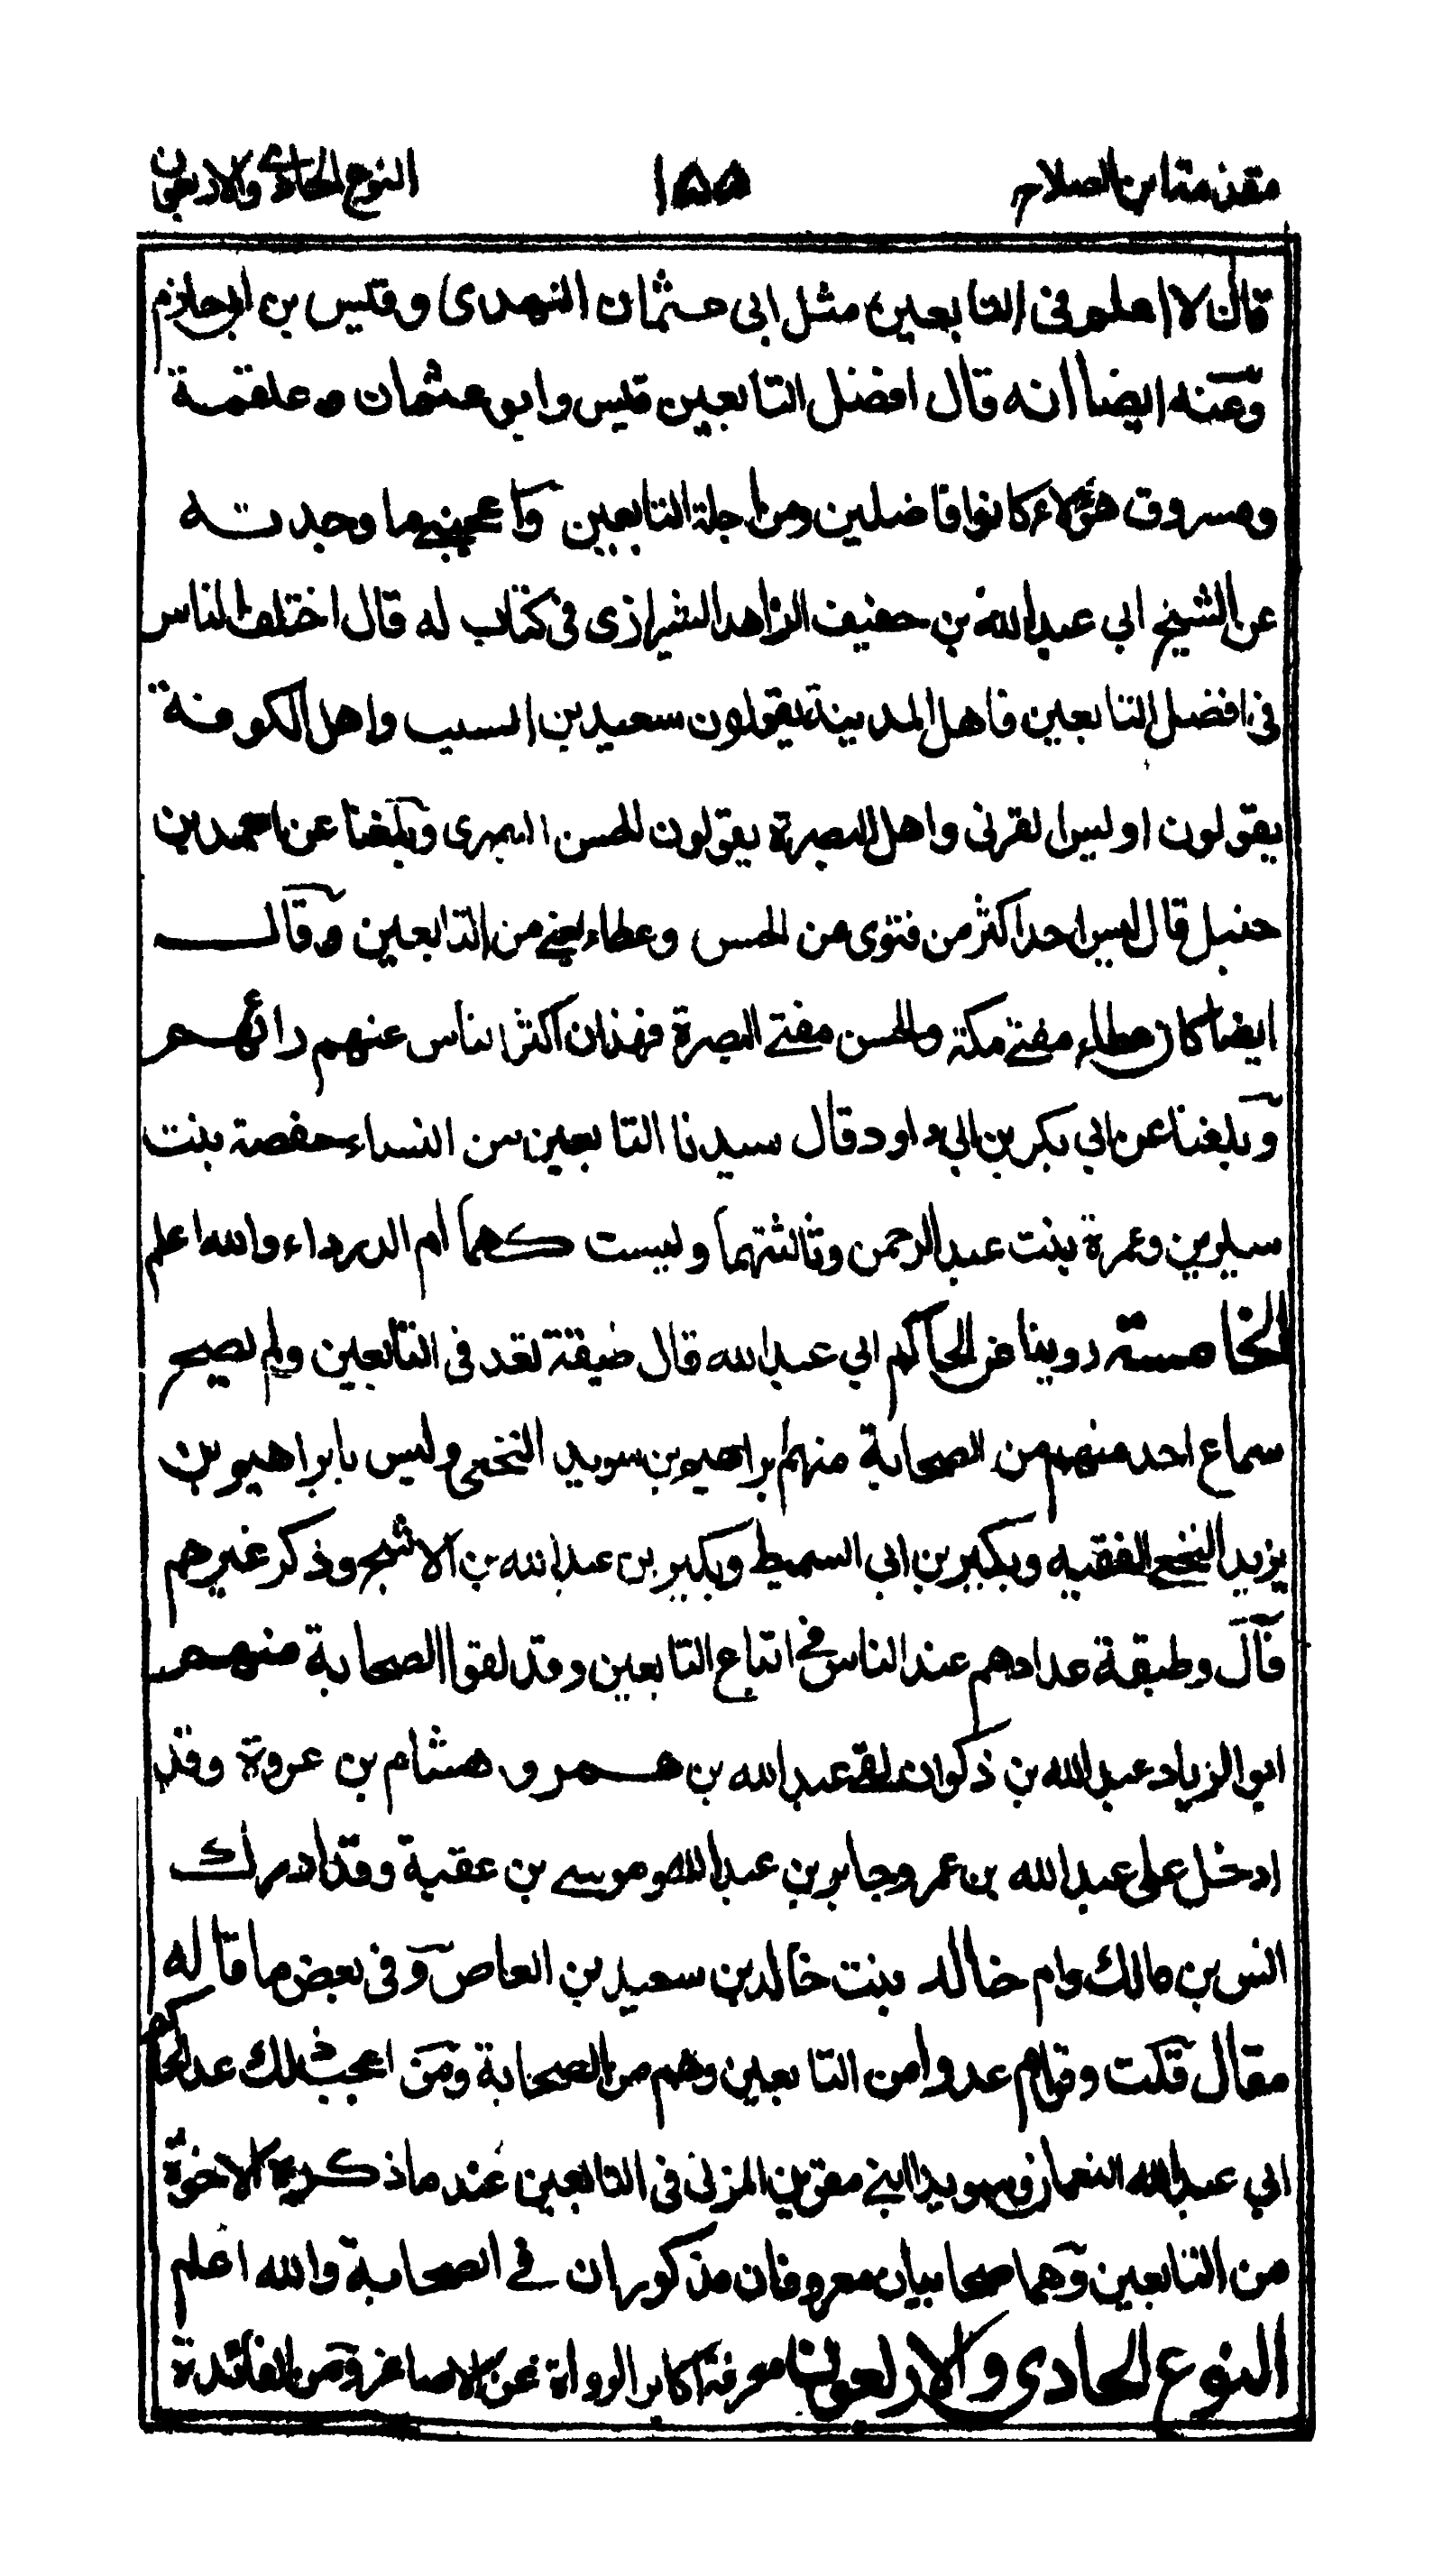 مقدمة ابن الصلاح ١٥٥ النوع الحادي والاربعون
قال لا اعلم في التابعين مثل ابي عثمان النهدي وقيس بن ابي حازم
وعنه ايضا انه قال افضل التابعين قيس وابو عثمان وعلقمة
ومسروق هؤلاء كانوا فاضلين ومن اجلة التابعين واعجبني ما وجدته
عن الشيخ ابي عبد الله بن حفيف الزاهد الشيرازي في كتاب له قال اختلف الناس
في افضل التابعين فاهل المدينة يقولون سعيد بن المسيب واهل الكوفة
يقولون اويس القرني واهل البصرة يقولون الحسن البصري وبلغنا عن احمد بن
حنبل قال ليس احد اكثر من فتوى من الحسن وعطاء يعني من التابعين وقال
ايضا كان عطاء مفتي مكة والحسن مفتي البصرة فهذان اكثر الناس عنهم رائهم
وبلغنا عن ابي بكر بن ابي داود قال سيدتا التابعين من النساء حفصة بنت
سيرين وعمرة بنت عبد الرحمن وثالثتهما وليست كهما ام الدرداء والله اعلم
الخامسة روينا عن الحاكم ابي عبد الله قال طبقة تعد في التابعين ولم يصح
سماع احد منهم من الصحابة منهم ابراهيم بن سويد النخعي وليس بابراهيم بن
يزيد النخعي الفقيه وبكير بن ابي السميط وبكير بن عبد الله بن الاشج وذكر غيرهم
قال وطبقة عدادهم عند الناس في اتباع التابعين وقد لقوا الصحابة منهم
ابو الزناد عبد الله بن ذكوان لقي عبد الله بن عمر و هشام بن عروة وقد
ادخل على عبد الله بن عمر وجابر بن عبد الله وموسى بن عقبة وقد ادرك
انس بن مالك وام خالد بنت خالد بن سعيد بن العاص وفي بعض ما قاله
مقال قلت وقوم عدوا من التابعين وهم من الصحابة ومن اعجب ذلك عد الحاكم
ابي عبد الله النعمان وسويدا ابني مقرن المزني في التابعين عند ما ذكره الاخوة
من التابعين وهما صحابيان معروفان مذكوران في الصحابة والله اعلم
النوع الحادي والاربعون معرفة اكابر الرواة عن الاصاغر ومن الفائدة